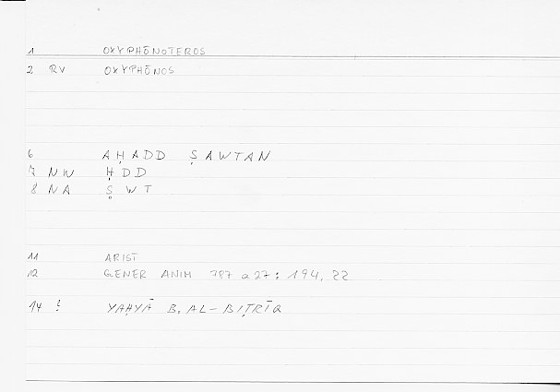 1 OXYPHŌNOTEROS
2 RV OXYPHŌNOS
6 AḤADD ṢAWTAN
7 NW ḤDD
8 NA ṢWT
11 ARIST
12 GENER ANIM 787 a 27 : 194, 22
14 ! YAḤYĀ B. AL-BIṬRĪQ